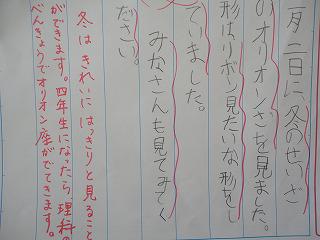 一月二日に冬のせいざ
のオリオンざを見ました。
形はリボン見たいな形をし
ていました。
みなさんも見てみてく
ださい。
冬はきれいにはっきりと見ること
ができます。四年生になったら、理科の
べんきょうでオリオン座がでてきます。